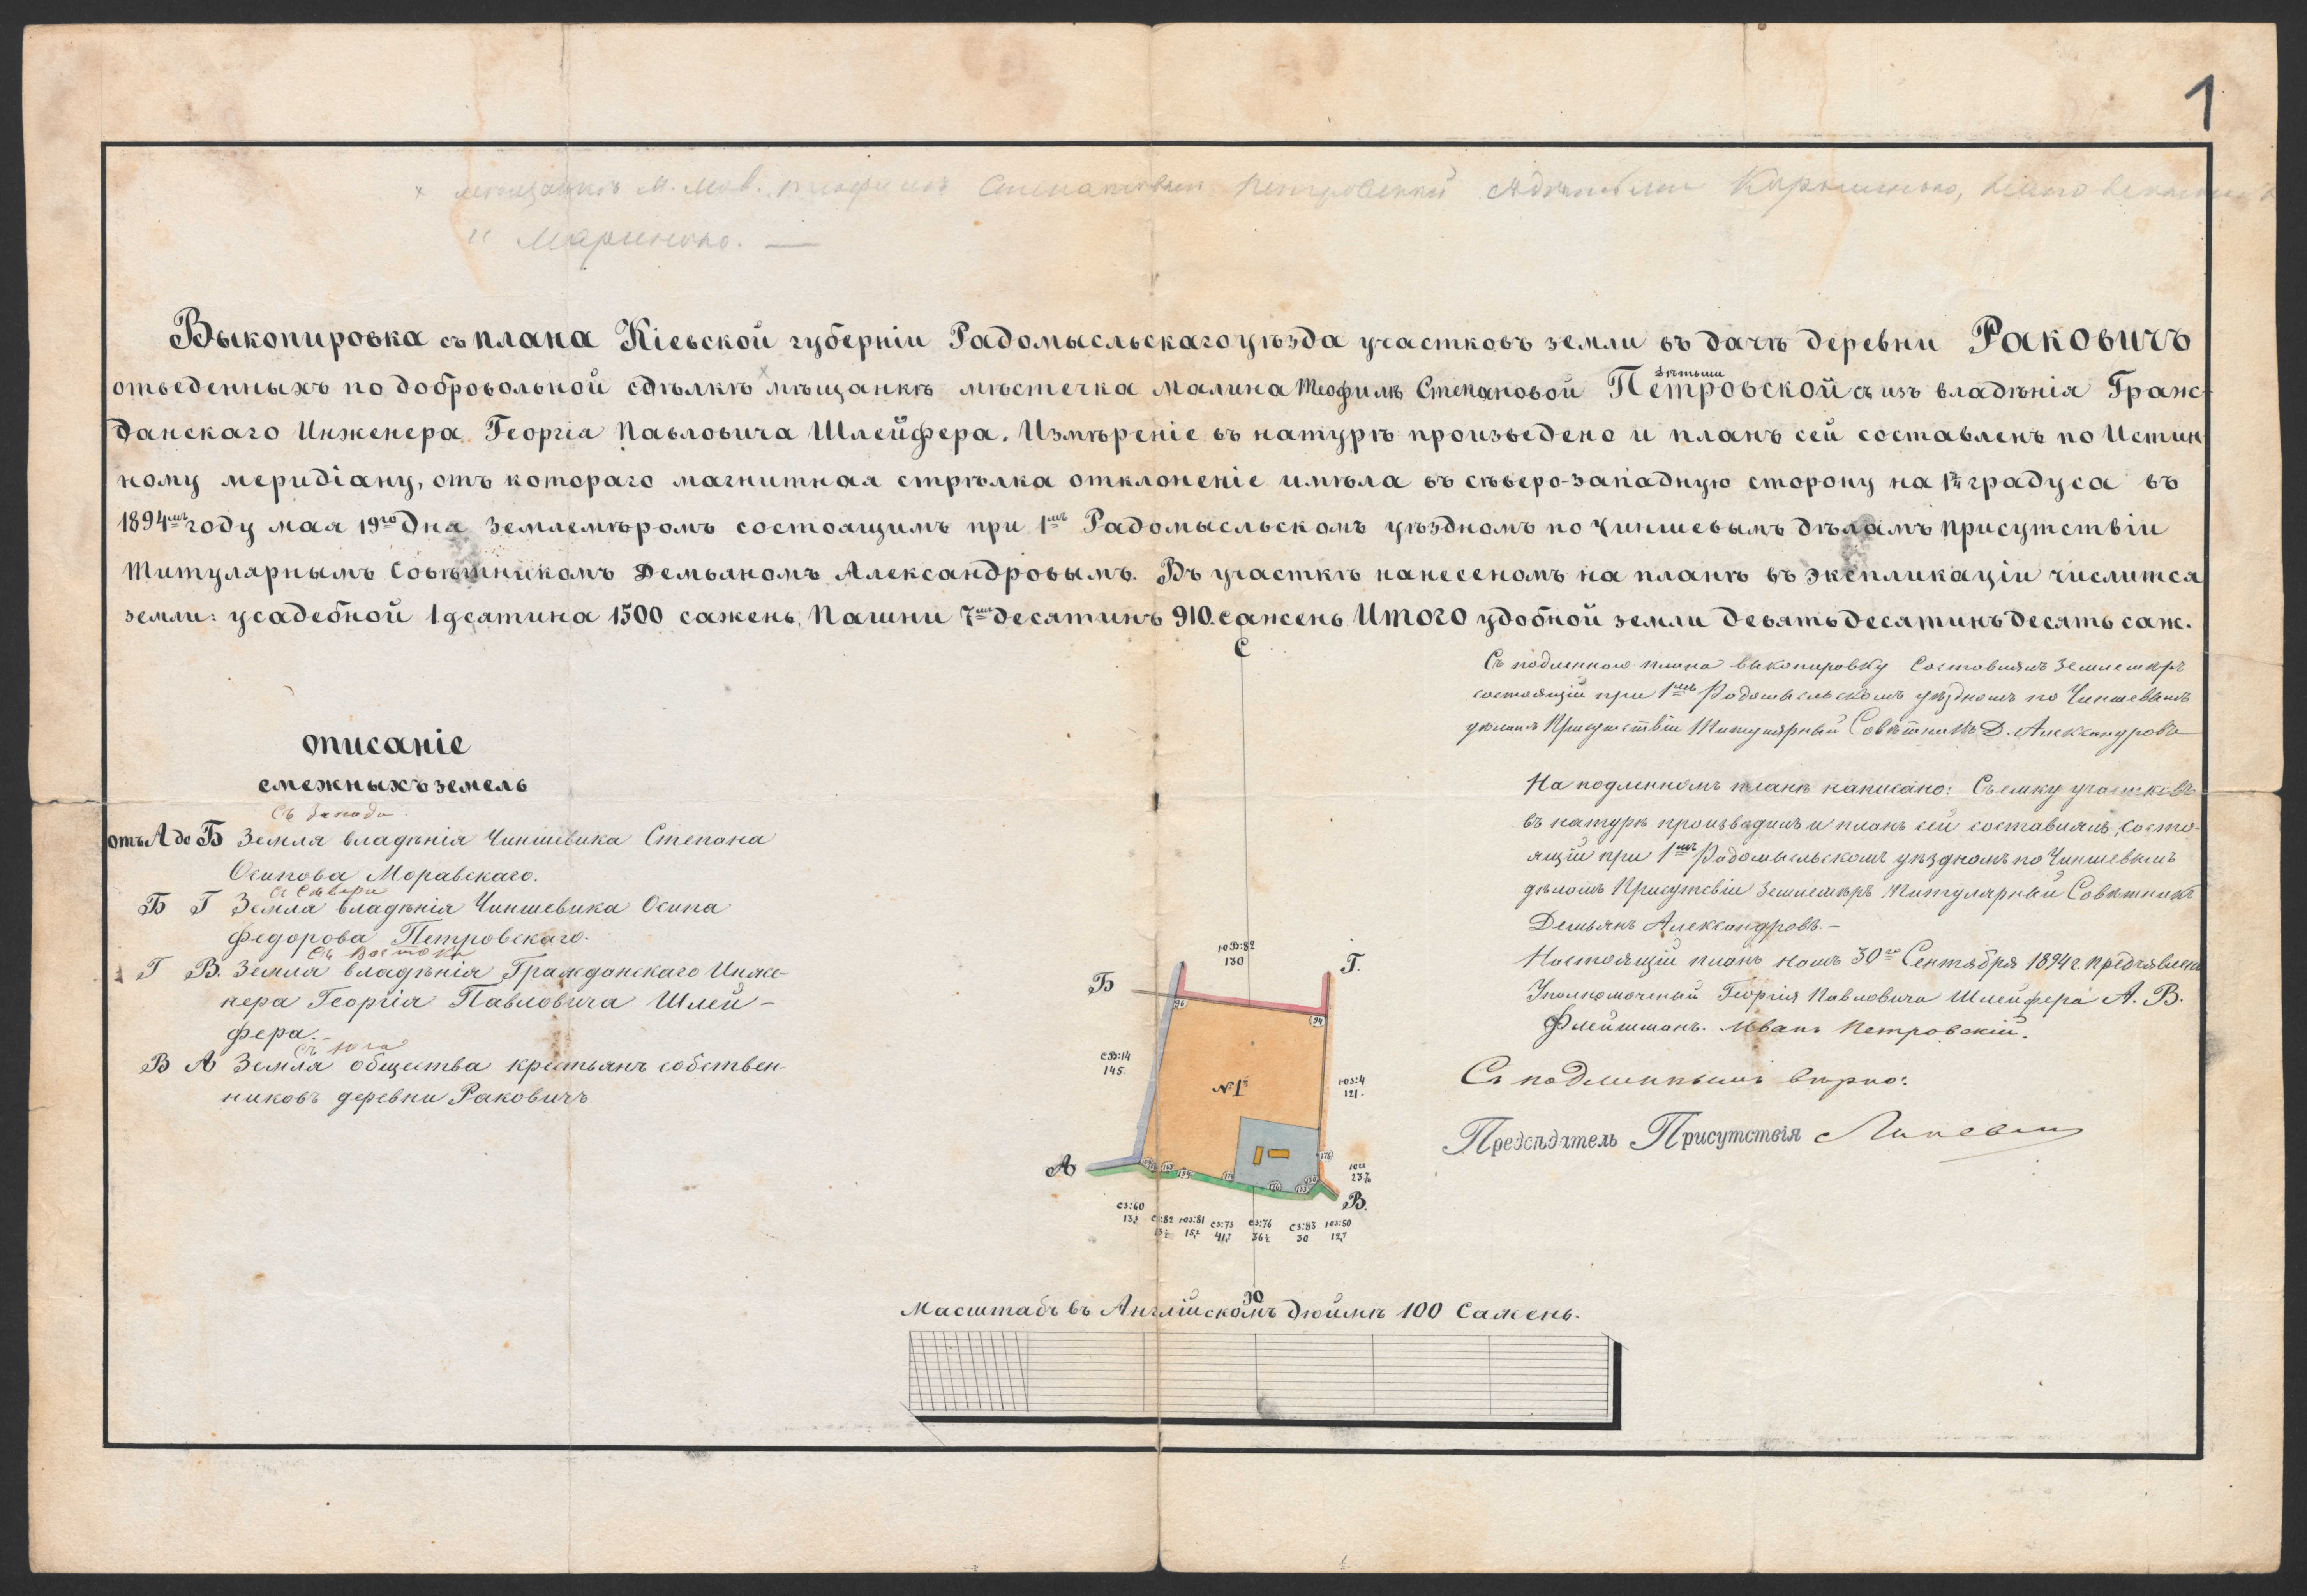 1
и Марьяною. —
Выкопировка съ плана Кіевской губерніи Радомысльскаго уѣзда участковъ земли въ дачѣ деревни Раковичъ
отведенныхъ по добровольной сдѣлкѣ мѣщанкѣ мѣстечка Малина Теофилѣ Степановой Петровской съ дѣтьми изъ владѣнія Граж-
данскаго Инженера Георгія Павловича Шлейфера. Измѣреніе въ натурѣ произведено и планъ сей составленъ по Истин
ному меридіану, отъ котораго магнитная стрѣлка отклоненіе имѣла въ сѣверо-западную сторону на градуса въ
1894мъ году мая 19го дня Землемѣромъ состоящимъ при 1мъ Радомысльскомъ уѣздномъ по Чиншевымъ дѣламъ Присутствіи
Титулярнымъ Совѣтникомъ Демьяномъ Александровымъ. Въ участкѣ нанесеномъ на планѣ въ экспликаціи числится
земли: усадебной 1 дсятина 1500 сажень, Пашни 7мь десятинъ 910. сажень Итого удобной земли девять десятинъ десять саж.
Съ подленного плана выкопировку Составилъ Землемѣръ
состоящій при 1мъ Радомысльскомъ уѣздномъ по Чиншевымъ
дѣламъ Присутствіи Титулярный Совѣтникъ Д. Александровъ
На подленномъ планѣ написано: Съемку участковъ
въ натурѣ производилъ и планъ сей составилъ, состо-
ящій при 1мъ Радомысльскомъ уѣздномъ по Чиншевымъ
дѣламъ Присутсвіи Землемѣръ Титулярный Совѣтникъ
Демьянъ Александровъ.-
Настоящій планъ намъ 30го Сентября 1894 г. предъявленъ
Уполномоченый Георгія Павловича Шлейфера А. В.
Флейшманъ. Иванъ Петровскій.
Съ подлиннымъ вѣрно:
Предсѣдатель Присутствія
описаніе
смежныхъ земель
Съ Запада.
отъ А до Б Земля владѣнія Чиншевика Степана
Осипова Моравскаго.
Съ Сѣвера
Б Г Земля владѣнія Чиншевика Осипа
Федорова Петровскаго.
Съ Востока
Г В. Земля владѣнія Гражданскаго Инже-
нера Георгія Павловича Шлей-
фера.-
Съ Юга
В А Земля общества крестьянъ собствен-
никовъ деревни Раковичъ
С
ЮВ:82
130
Б
Г.
96
94
СВ:14
145.
№1й
ЮЗ:4
121.
А
В.
СЗ:60
СЗ:82
ЮЗ:81
СЗ:73
41,7
СЗ:76
36½
СЗ:83
30
ЮЗ:50
12,7
Ю
Масштабъ въ Англійскомъ дюймѣ 100 Сажень.